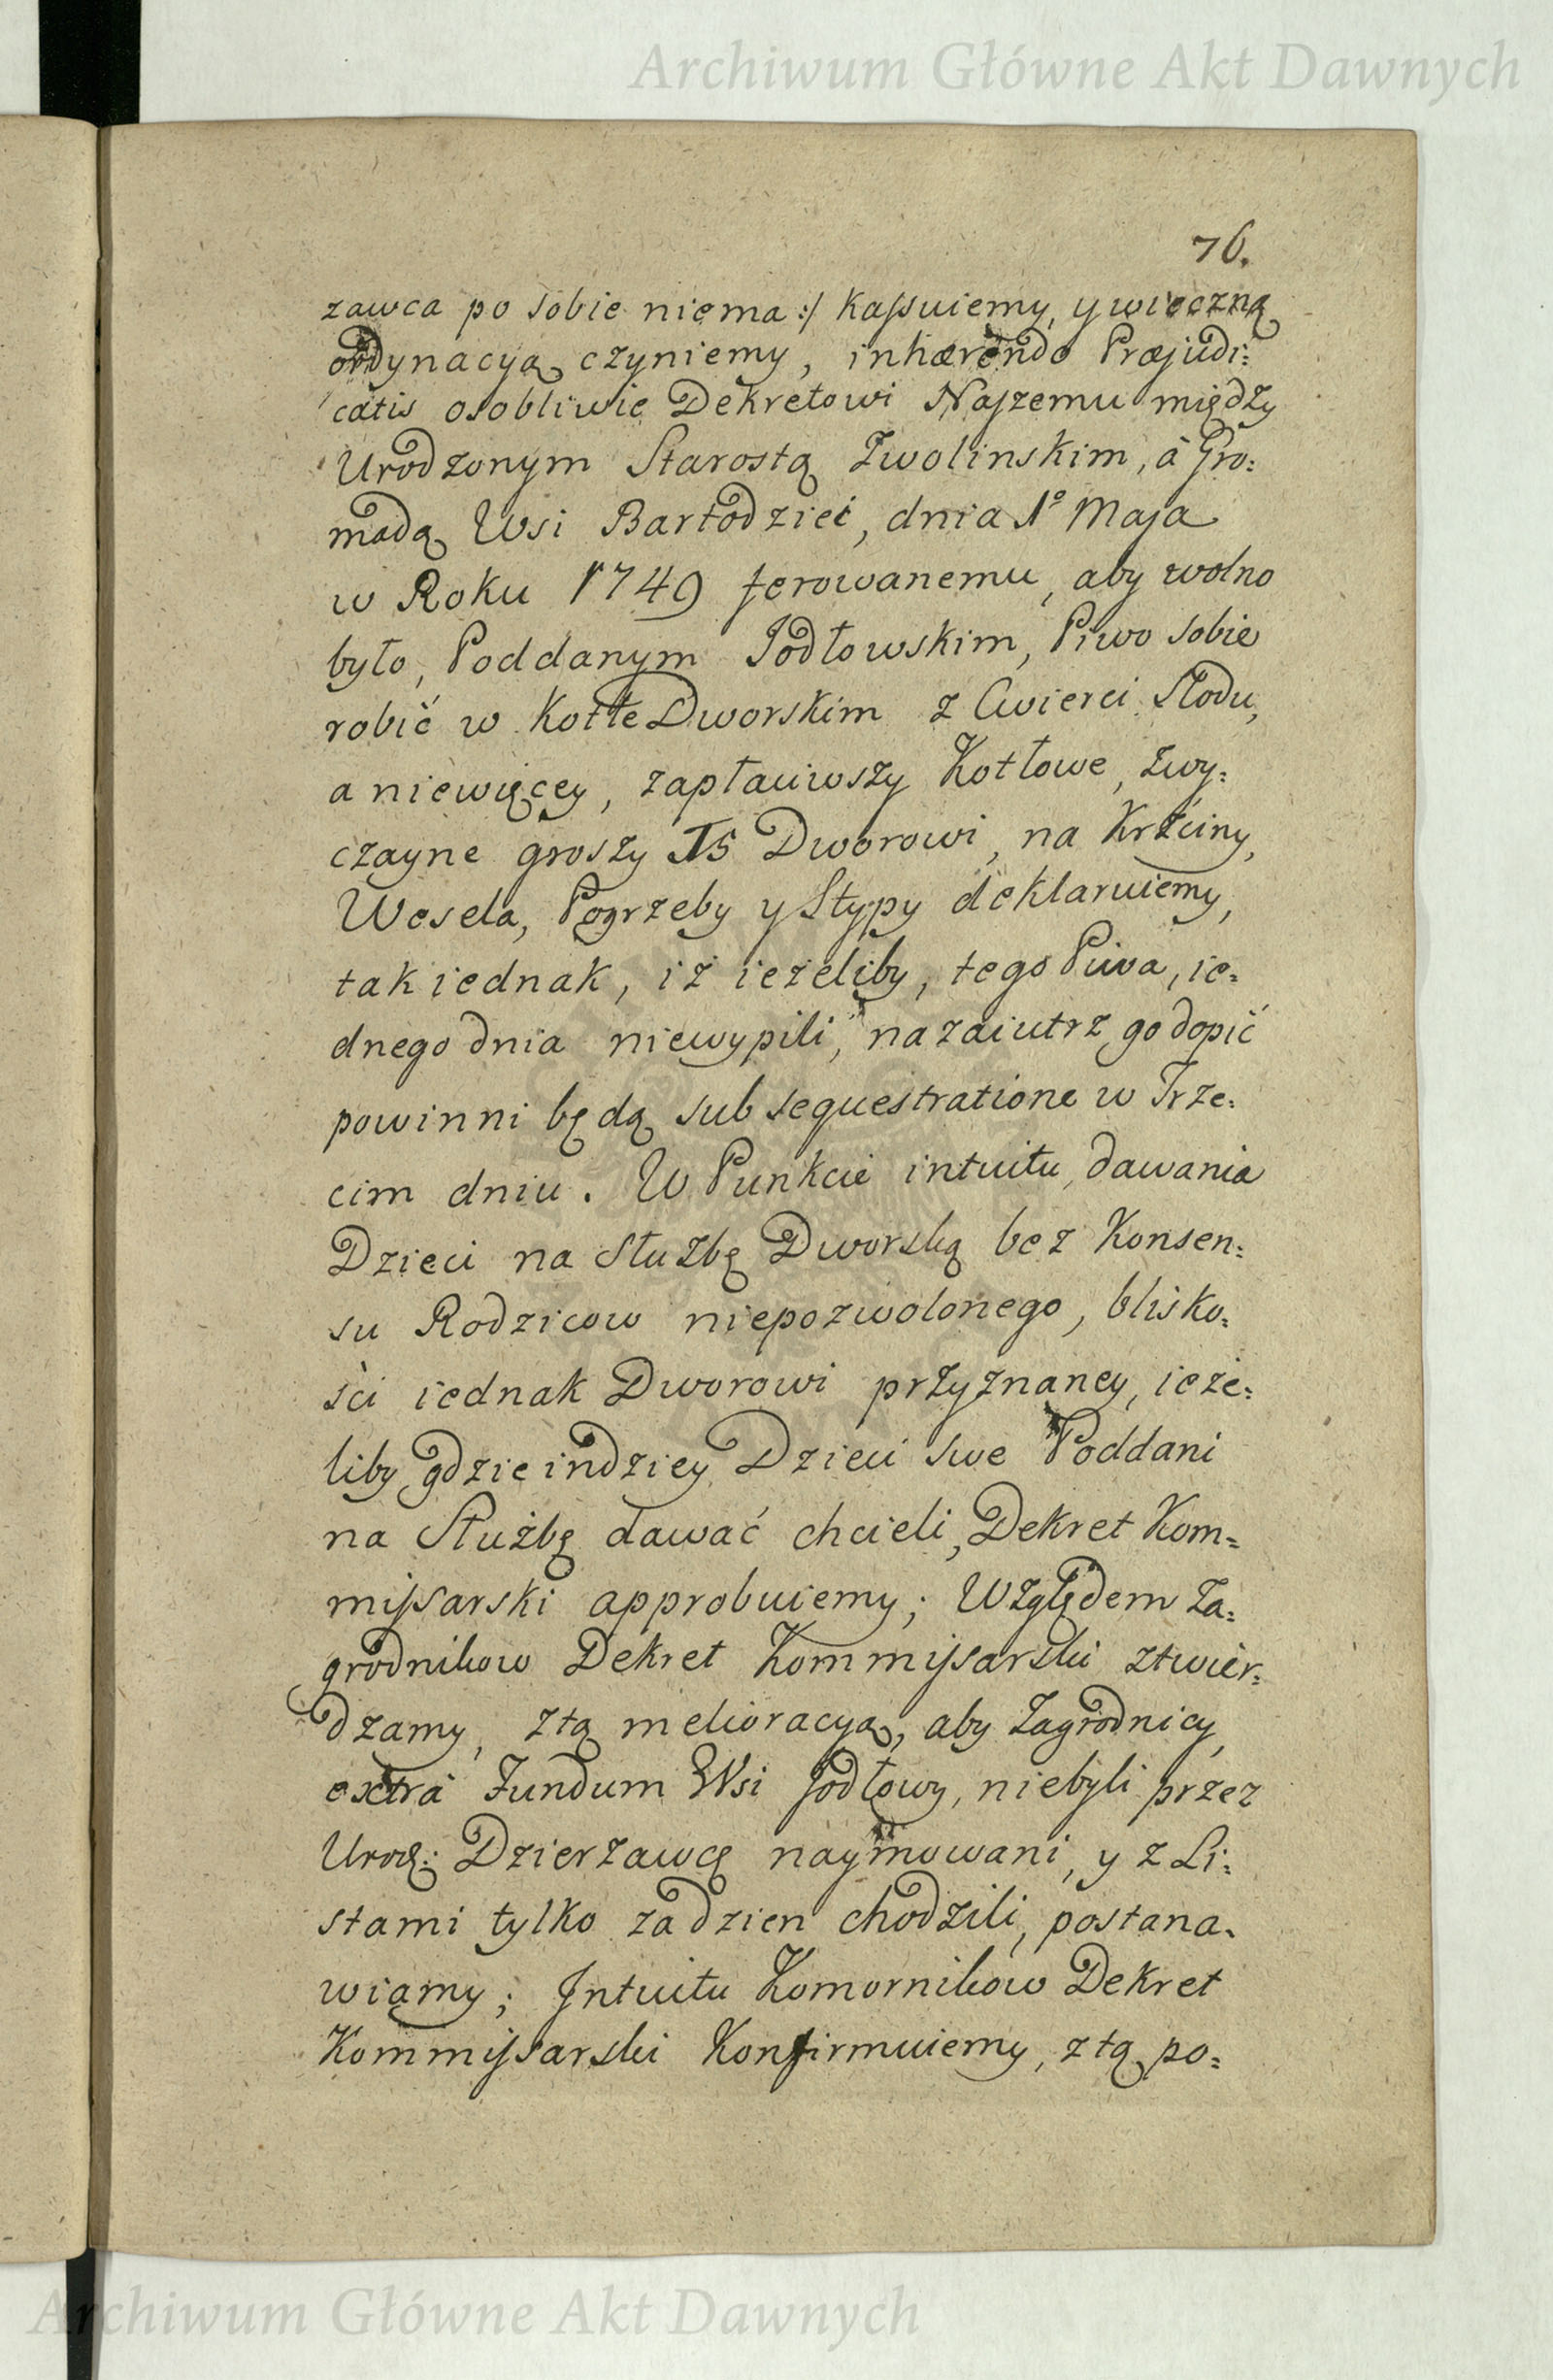 Archiwum Główne Akt Dawnych
76.
zawca po sobie niema :/ kassuiemy, y wieczną
ordynacyą czyniemy, inhærendo Præjudi:
catis osobliwie Dekretowi Naszemu między
Urodzonym Starostą Zwolinskim, à Gro:
madą Wsi Bartodziei, dnia 1º Maja
w Roku 1749 ferowanemu, aby wolno
było, Poddanym Jodłowskim, Piwo sobie
robić w Kotle Dworskim z Cwierci Słodu,
a niewięcey, zapłaciwszy Kotłowe, zwy:
czayne groszy 15 Dworowi, na Krzciny,
Wesela, Pogrzeby y Stypy deklaruiemy,
tak iednak, iż ieżeliby, tego Piwa, ie:
dnego dnia niewypili, nazaiutrz go dopić
powinni będą sub sequestratione w Trze:
cim dniu. W Punkcie intuitu dawania
Dzieci na Służbę Dworską bez Konsen:
su Rodzicow niepozwolonego, blisko:
ści iednak Dworowi przyznaney, ieże:
liby gdzie indziey Dzieci swe Poddani
na Służbę dawać chcieli, Dekret Kom=
missarski approbuiemy; Względem Za:
grodnikow Dekret Kommissarski ztwier:
dzamy, z tą melioracyą, aby Zagrodnicy,
extrà Fundum Wsi Jodłowy, niebyli przez
Urod: Dzierzawcę naymowani, y z Li:
stami tylko za dzien chodzili, postana:
wiamy; Intuitu Komornikow Dekret
Kommissarski Konfirmuiemy, z tą po:
Archiwum Główne Akt Dawnych